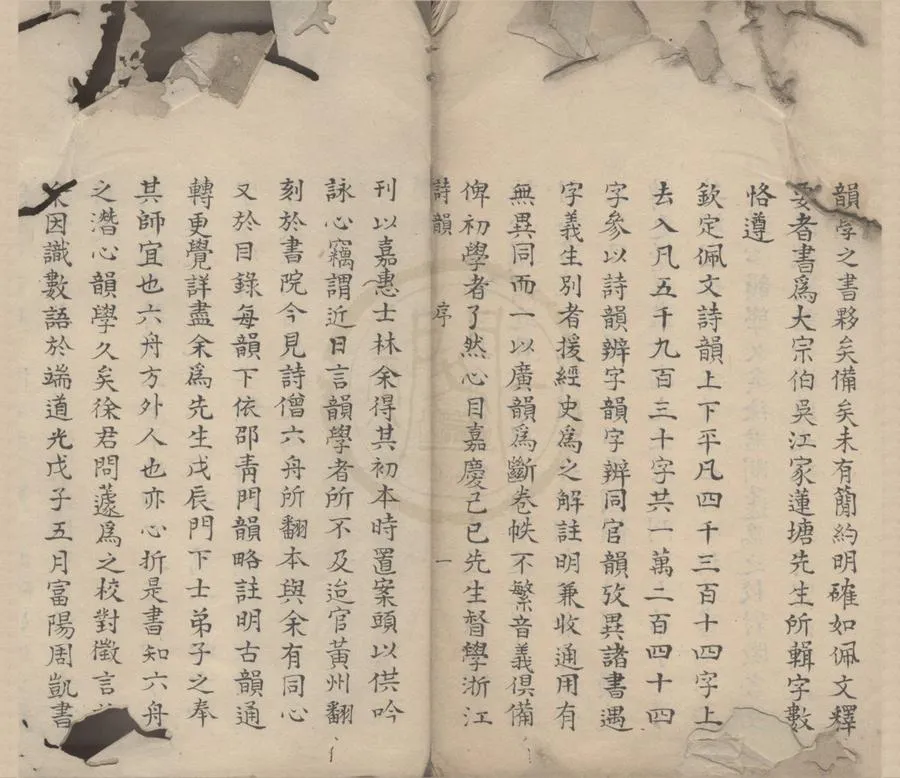 韻學之書夥矣備矣未有簡約明確如佩文釋
要者書為大宗伯吳江家蓮塘先生所輯字數
恪遵
欽定佩文詩韻上下平凡四千三百十四字上
去入凡五千九百三十字共一萬二百四十四
字參以詩韻辨字韻字辨同官韻攷異諸書遇
字義生別者援經史為之解註明兼收通用有
無異同而一以廣韻為斷卷帙不繁音義俱備
俾初學者了然心目嘉慶己巳先生督學浙江
詩韻 序 一
刊以嘉惠士林余得其初本時置案頭以供吟
詠心竊謂近日言韻學者所不及迨官黃州翻
刻於書院今見詩僧六舟所翻本與余有同心
又於目錄每韻下依邵青門韻略註明古韻通
轉更覺詳盡余為先生戊辰門下士弟子之奉
其師宜也六舟方外人也亦心折是書知六舟
之潛心韻學久矣徐君問蘧為之校對徵言
余因識數語於端道光戊子五月富陽周凱書